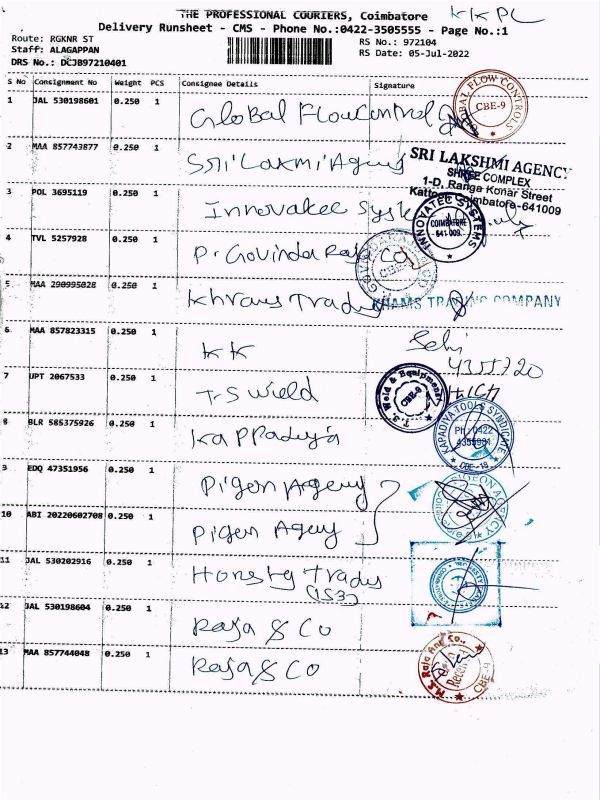 THE PROFESSIONAL COURIERS, Coimbatore
KKPC
Delivery Runsheet - CMS - Phone No.:0422-3505555 - Page No.:1
Route: RGKNR ST
RS No.: 972104
Staff: ALAGAPPAN
RS Date: 05-Jul-2022
DRS No.: DCJB97210401
S No Consignment No Weight PCS Consignee Details Signature
1 JAL 530198601 0.250 1 Global Flowcontrol
GLOBAL FLOW CONTROLS CBE-9
2 MAA 857743877 0.250 1 Sri Laxmi Agency
SRI LAKSHMI AGENCY
SHREE COMPLEX
1-D, Ranga Konar Street
Coimbatore-641009
3 POL 3695119 0.250 1 Innovatec Syst
INNOVATEC SYSTEMS COIMBATORE 641 009.
4 TVL 5257928 0.250 1 P. Govinda Raja Co
CBE-9
5 MAA 290995028 0.250 1 Khrams Trady
KHAMS TRADING COMPANY
6 MAA 857823315 0.250 1 KK
4355720
7 UPT 2067533 0.250 1 T-S Wield
T.S. Weld & Equipments CBE-9
8 BLR 585375926 0.250 1 Kappadiya
KAPADIYA TOOLS SYNDICATE PH: 0422 4355981 CBE-18
9 EDQ 47351956 0.250 1 Pigen Agency
10 ABI 20220602708 0.250 1 Pigen Agency
11 JAL 530202916 0.250 1 Honesty Trady
(153)
12 JAL 530198604 0.250 1 Raja & Co
13 MAA 857744048 0.250 1 Raja & Co
M.S. Raja And Co., Received CBE-9